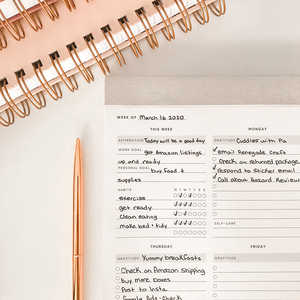 WEEK OF March 16 2020
THIS WEEK
AFFIRMATION Today will be a good day
WORK GOAL get Amazon listings
up and ready
PERSONAL GOAL buy food +
supplies
HABITS M T W T F S S
exercise
get ready
clean eating
make bed + tidy
MONDAY
GRATITUDE Cuddles with Pa
email Renegade Craft
Check on returned package
respond to Sticker email
Call about Hazard Review
SELF-CARE
THURSDAY
GRATITUDE Yummy breakfasts
Check on Amazon shipping
buy more boxes
Post to Insta
Google Ads - Check
FRIDAY
GRATITUDE